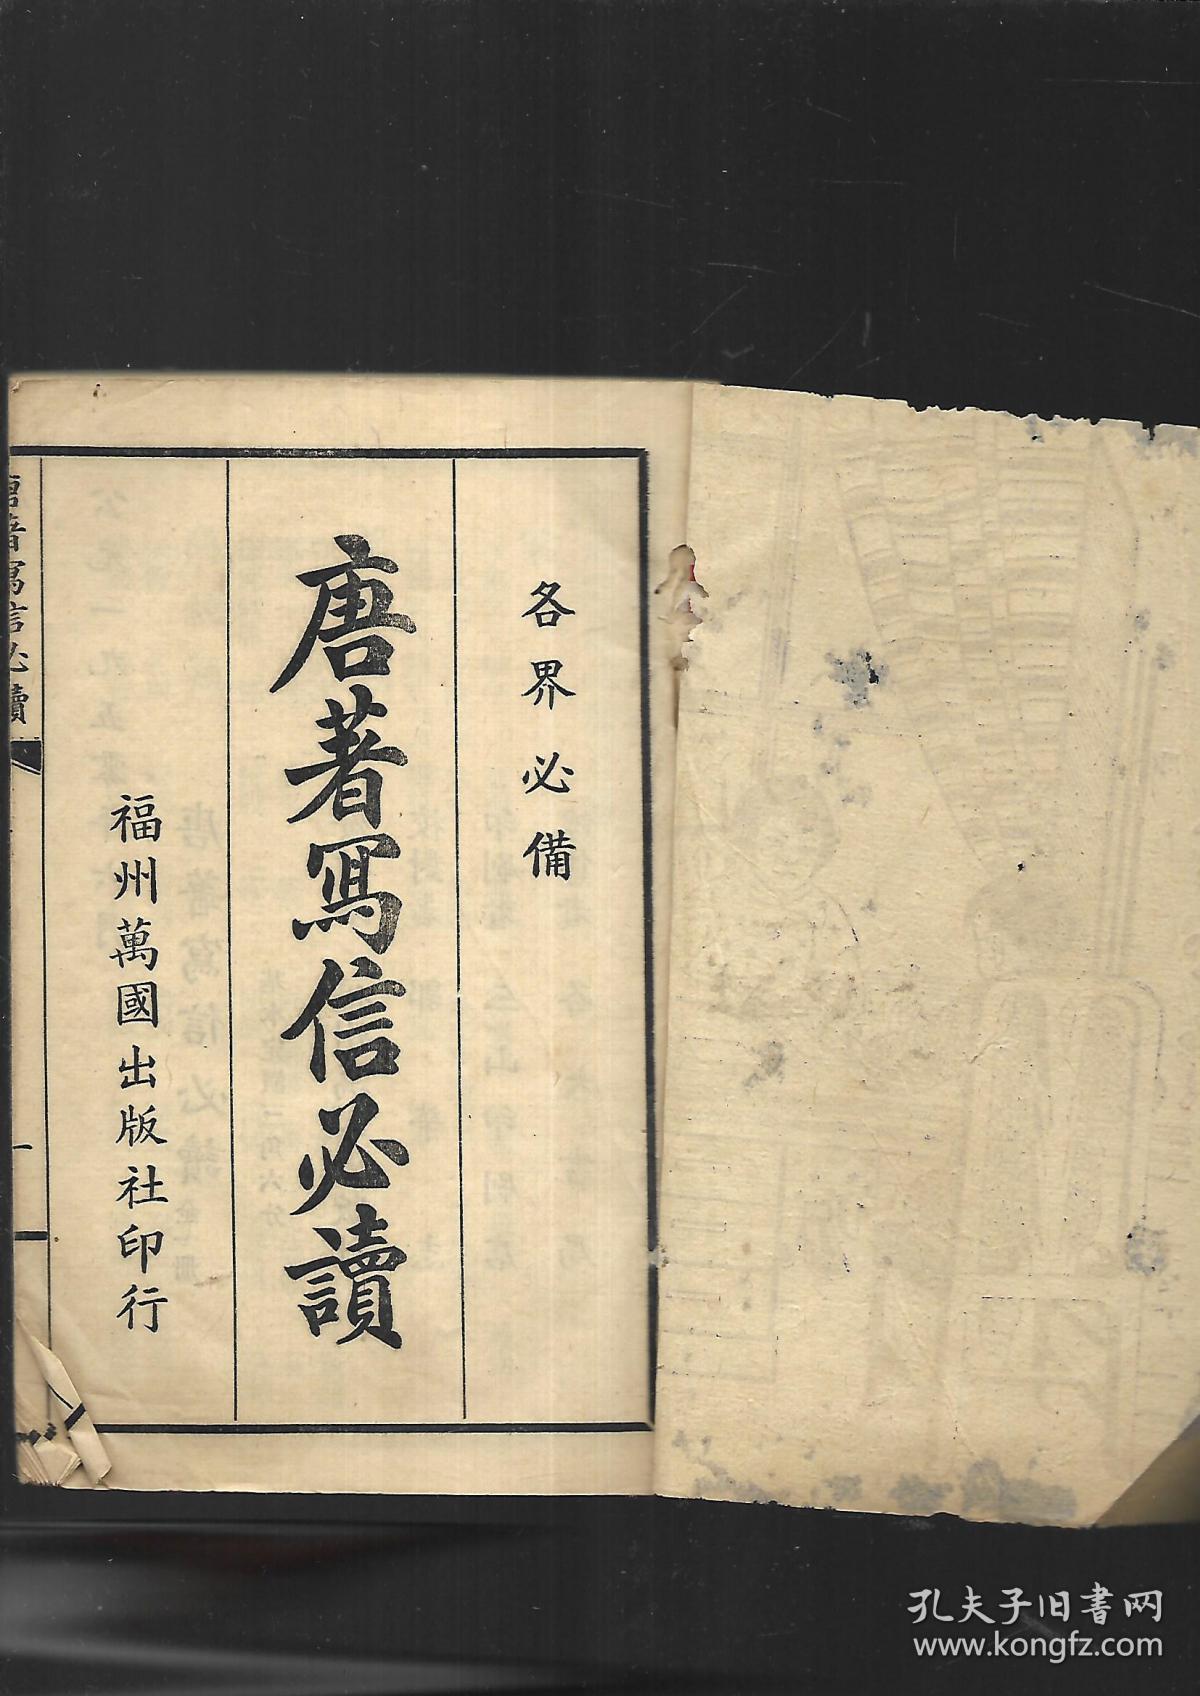 各界必備
唐著寫信必讀
福州萬國出版社印行
唐著寫信必讀
孔夫子旧書网
www.kongfz.com